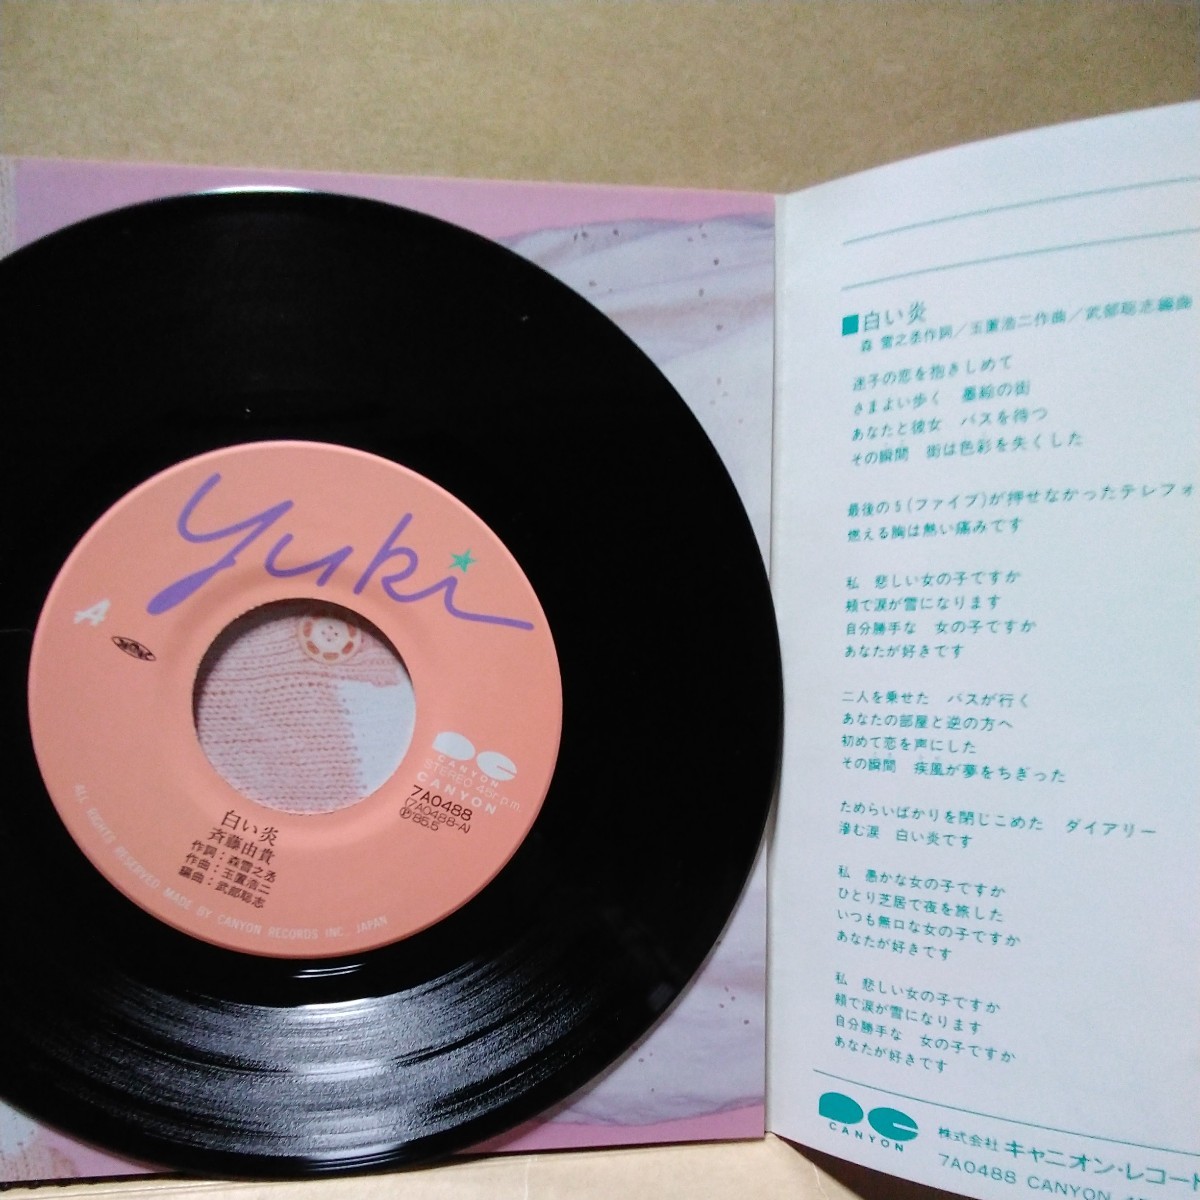 yuki
A
CANYON
STEREO 45r.p.m.
CANYON
7A0488
(7A0488-A)
Ⓟ'85.5
白い炎
斉藤由貴
作詞：森雪之丞
作曲：玉置浩二
編曲：武部聡志
ALL RIGHTS RESERVED MADE BY CANYON RECORDS INC. JAPAN
■白い炎
森 雪之丞作詞／玉置浩二作曲／武部聡志編曲
迷子の恋を抱きしめて
さまよい歩く　墨絵の街
あなたと彼女　バスを待つ
その瞬間　街は色彩を失くした
最後の5(ファイブ)が押せなかったテレフォ
燃える胸は熱い痛みです
私　悲しい女の子ですか
頬で涙が雪になります
自分勝手な　女の子ですか
あなたが好きです
二人を乗せた　バスが行く
あなたの部屋と逆の方へ
初めて恋を声にした
その瞬間　疾風が夢をちぎった
ためらいばかりを閉じこめた　ダイアリー
滲む涙　白い炎です
私　愚かな女の子ですか
ひとり芝居で夜を旅した
いつも無口な女の子ですか
あなたが好きです
私　悲しい女の子ですか
頬で涙が雪になります
自分勝手な　女の子ですか
あなたが好きです
CANYON
株式会社 キャニオン・レコード
7A0488 CANYON